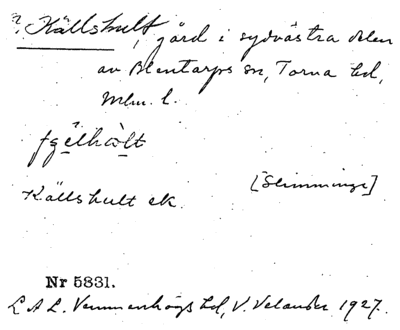 ? Källshult, gård i sydvästra delen
av Blentarps sn, Torna hd,
Mlm. l.
Källshult ek.
[Slimminge]
Nr 5831.
L A L. Vemmenhögs hd, V. Velander 1927.